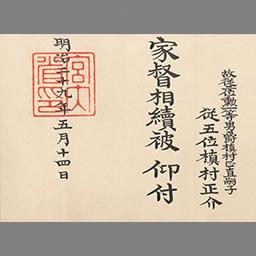 故從二位勲二等男爵槇村正直嗣子
從五位槇村正介
家督相續被 仰付
明治二十九年五月十四日
宮内省印